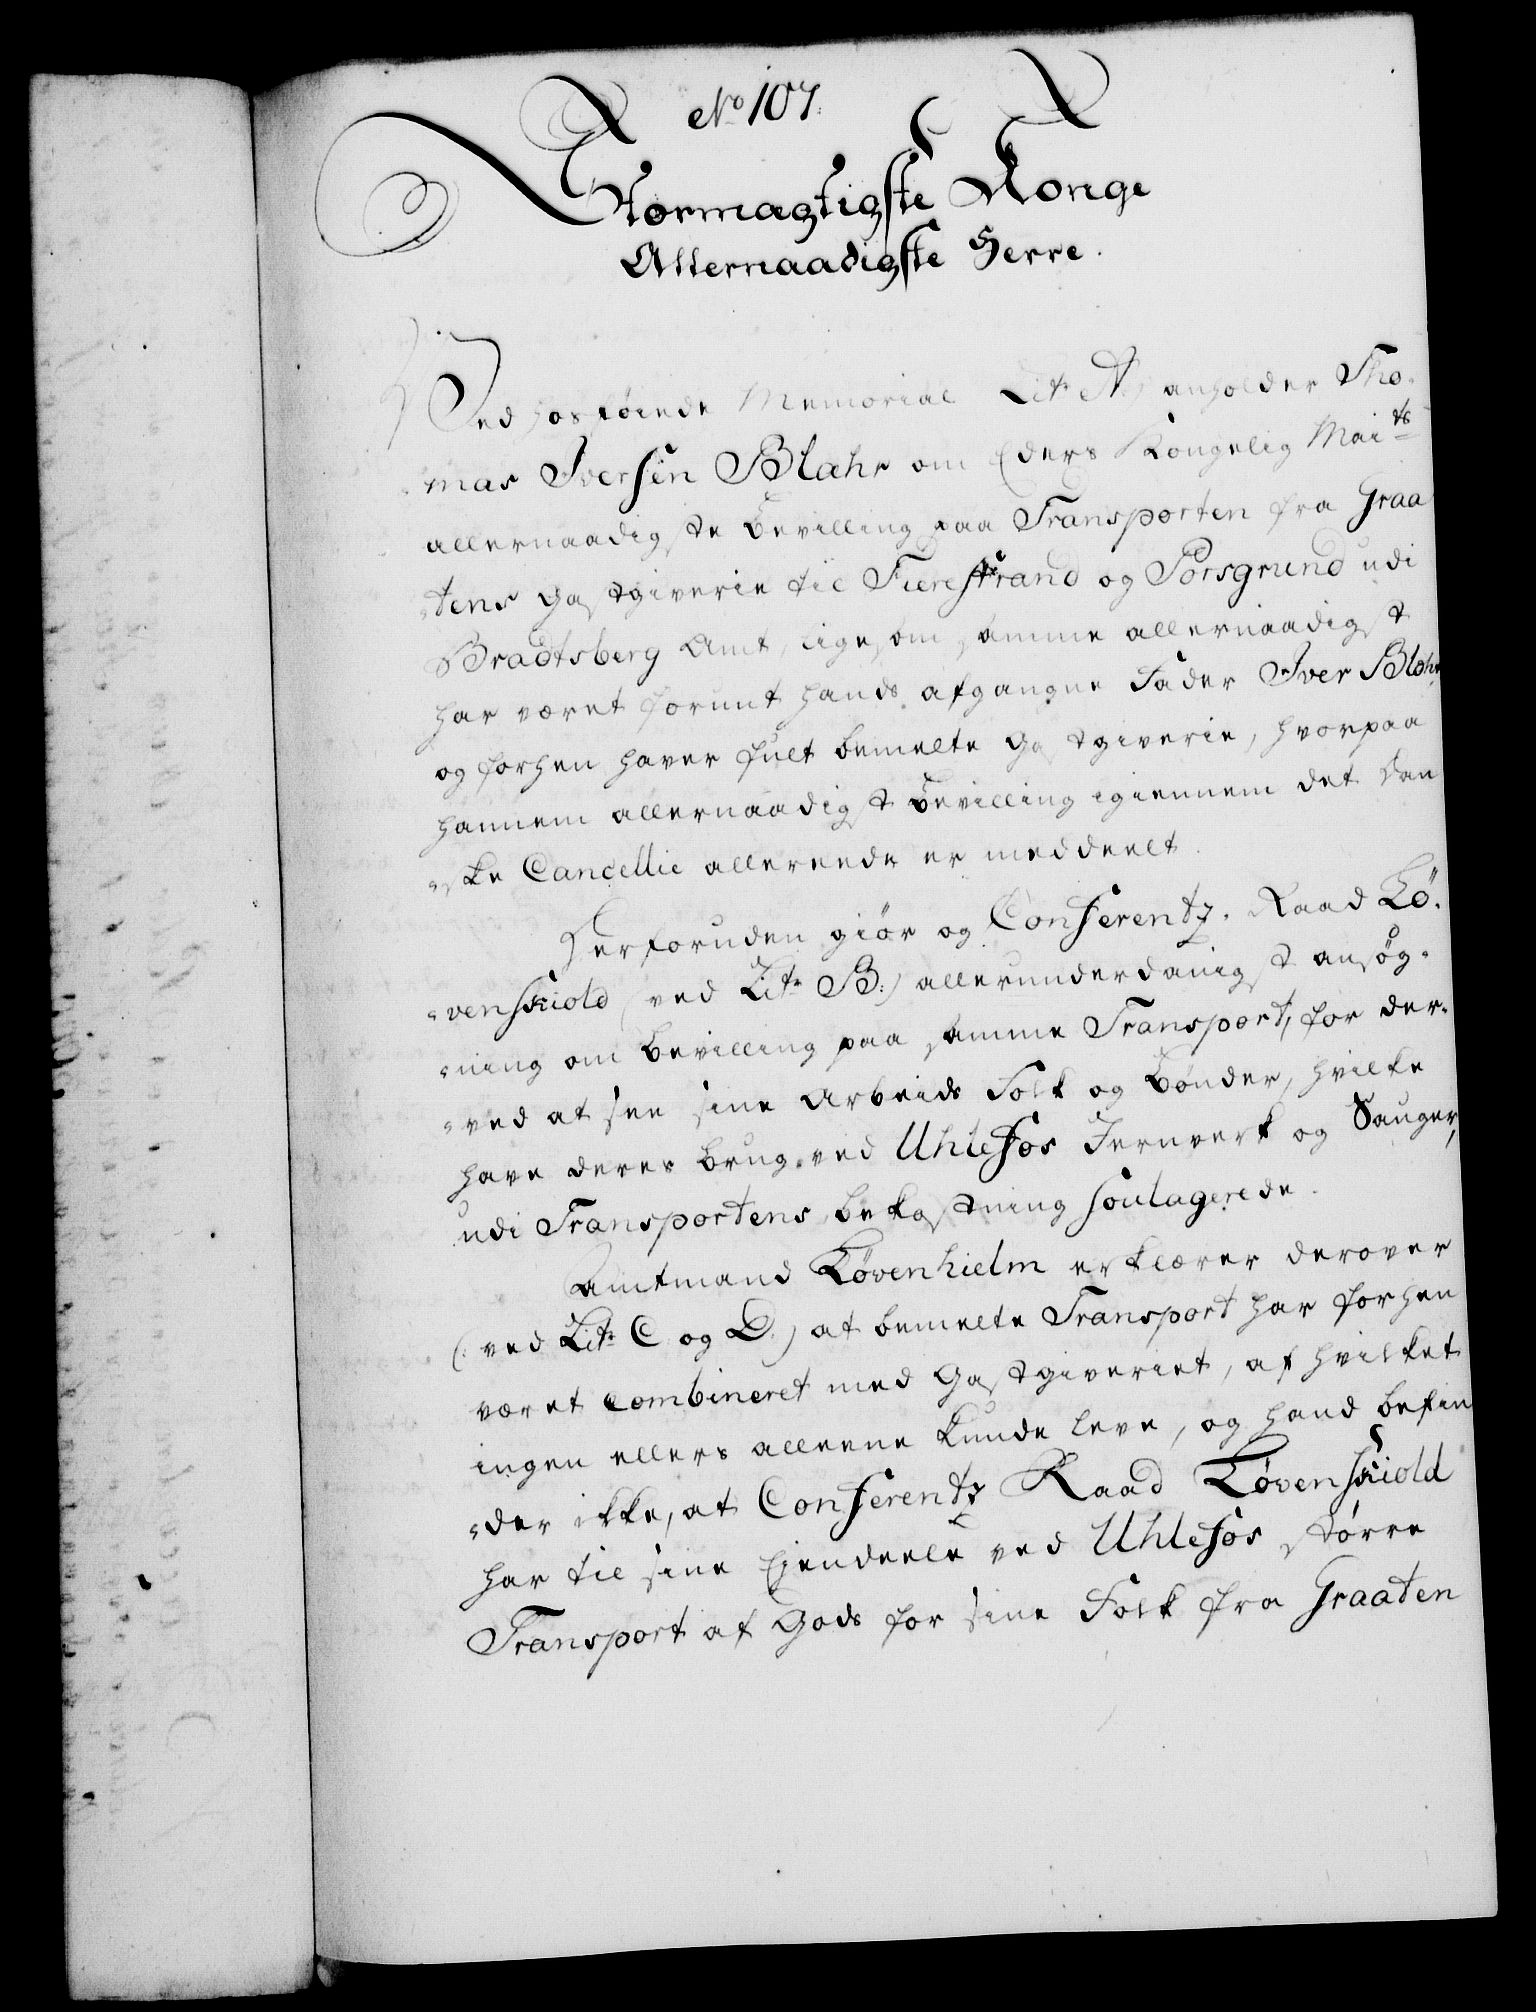 No 107.
Stormagtigste Konge
Allernaadigste Herre.
Ved hosføiede Memorial Lit: A:) anholder Tho-
-mas Iversen Blahr om Eders Kongelig Maits
allernaadigste Bevilling paa Transporten fra Graa
-tens Gastgiverie til Fierestrand og Porsgrund udi
Bradtsberg Amt, ligesom samme allernaadigst
har været forunt hands afgangne Fader Iver Blahr
og forhen haver fult bemelte Gastgiverie, hvorpaa
hannem allernaadigst Bevilling igiennem det Dan
-ske Cancellie allereede er meddeelt.
Herforuden giør og Conferentz-Raad Lö-
-venskiold (ved Lit: B:) allerunderdanigst ansøg-
-ning om bevilling paa samme Transport, for der-
-ved at see sine Arbeids Folk og Bønder, hvilke
have deres brug ved Uhlefos Jernverk og Sauger,
udi Transportens bekostning soulagerede.
Amtmand Løvenhielm erklærer derover
(: ved Lit: C og D.) at bemelte Transport har forhen
været combineret med Gastgiveriet, af hvilket
ingen ellers alleene kunde leve, og hand befin
-der ikke, at Conferentz Raad Løvenskiold
har til sine Ejendeele ved Uhlefos større
Transport af Gods for sine Folk fra Graaten